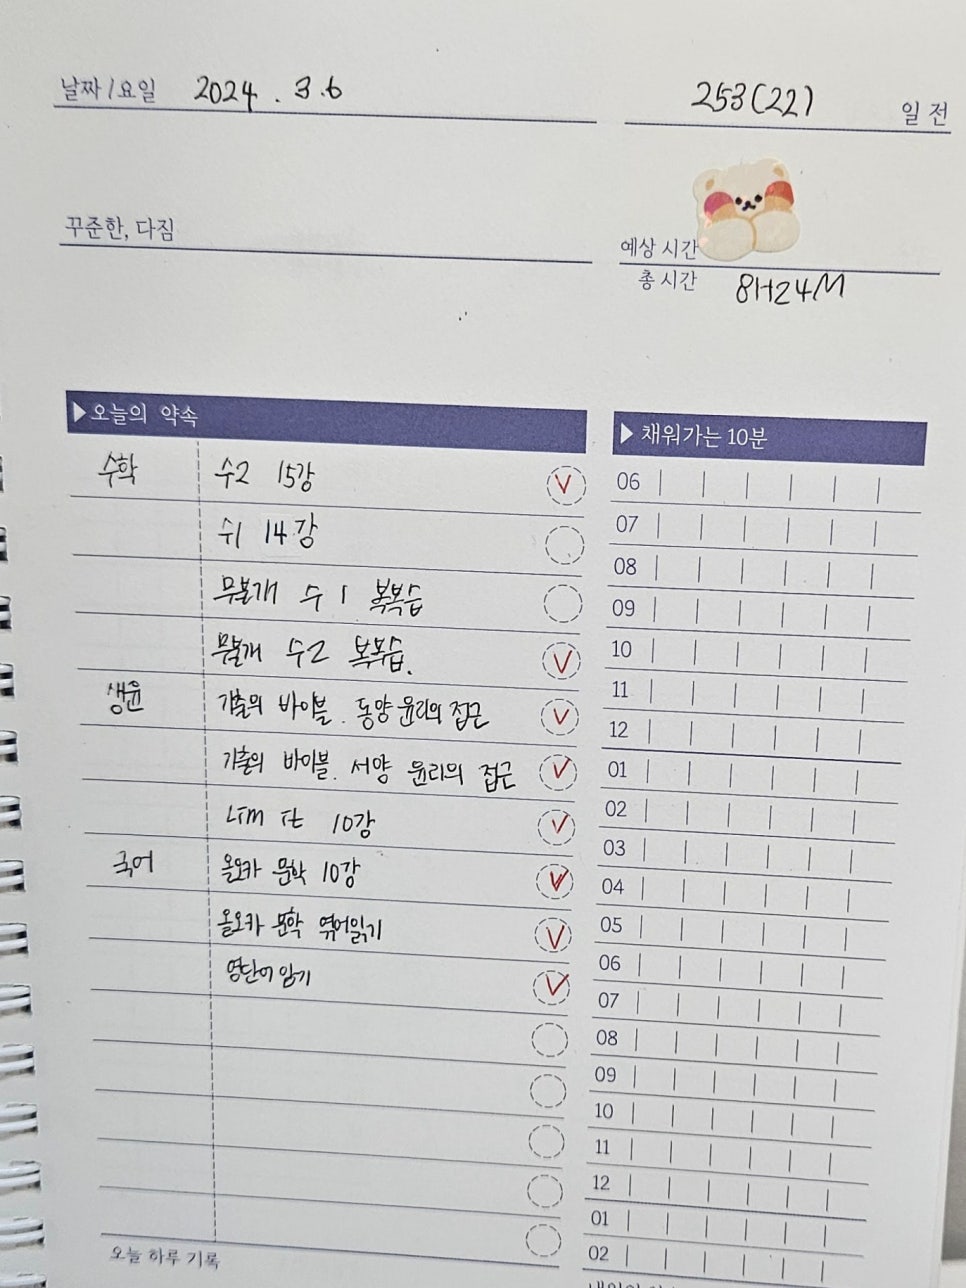 날짜 / 요일 2024 . 3 . 6
253(22) 일 전
꾸준한, 다짐
예상 시간
총 시간 8H24M
▶오늘의 약속
수학 수2 15강
수1 14강
무불개 수 1 복복습
무불개 수2 복복습.
생윤 기출의 바이블. 동양 윤리의 접근
기출의 바이블. 서양 윤리의 접근
10강
국어 올오카 문학 10강
올오카 문학 엮어읽기
영단어 암기
오늘 하루 기록
▶ 채워가는 10분
06
07
08
09
10
11
12
01
02
03
04
05
06
07
08
09
10
11
12
01
02